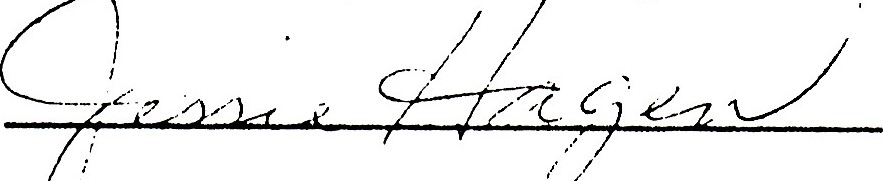 Jessie Hagen